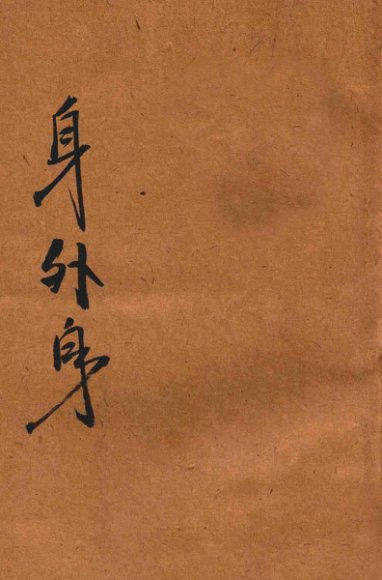 身外身